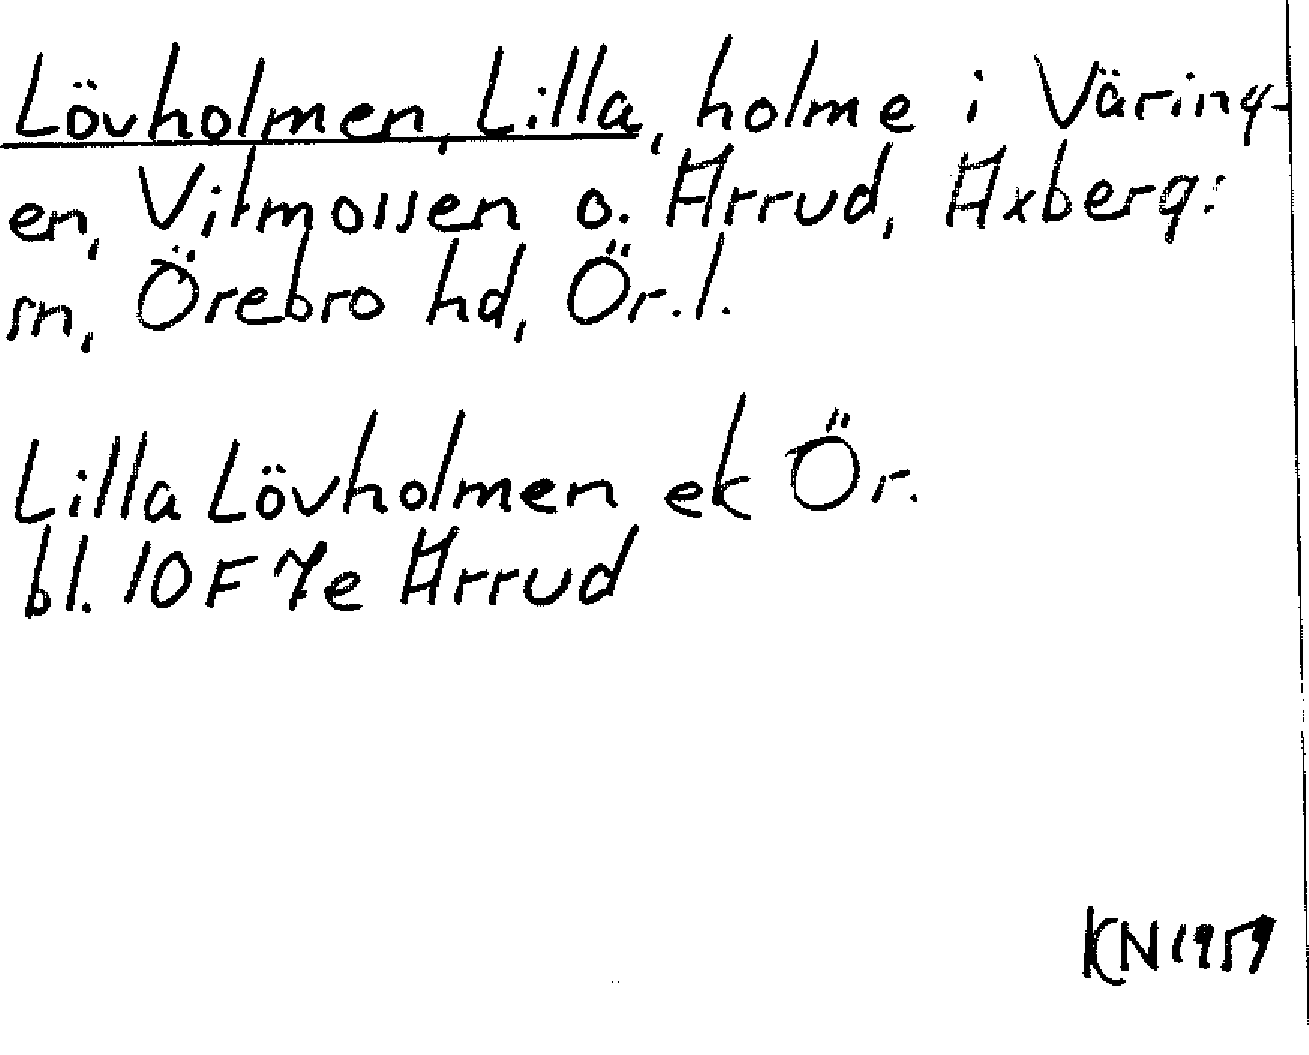 Lövholmen, Lilla, holme i Väring-
en, Vitmossen o. Ärrud, Axbergs
sn, Örebro hd, Ör.l.
Lilla Lövholmen ek Ör.
bl. 10F 7e Ärrud
KN 1959